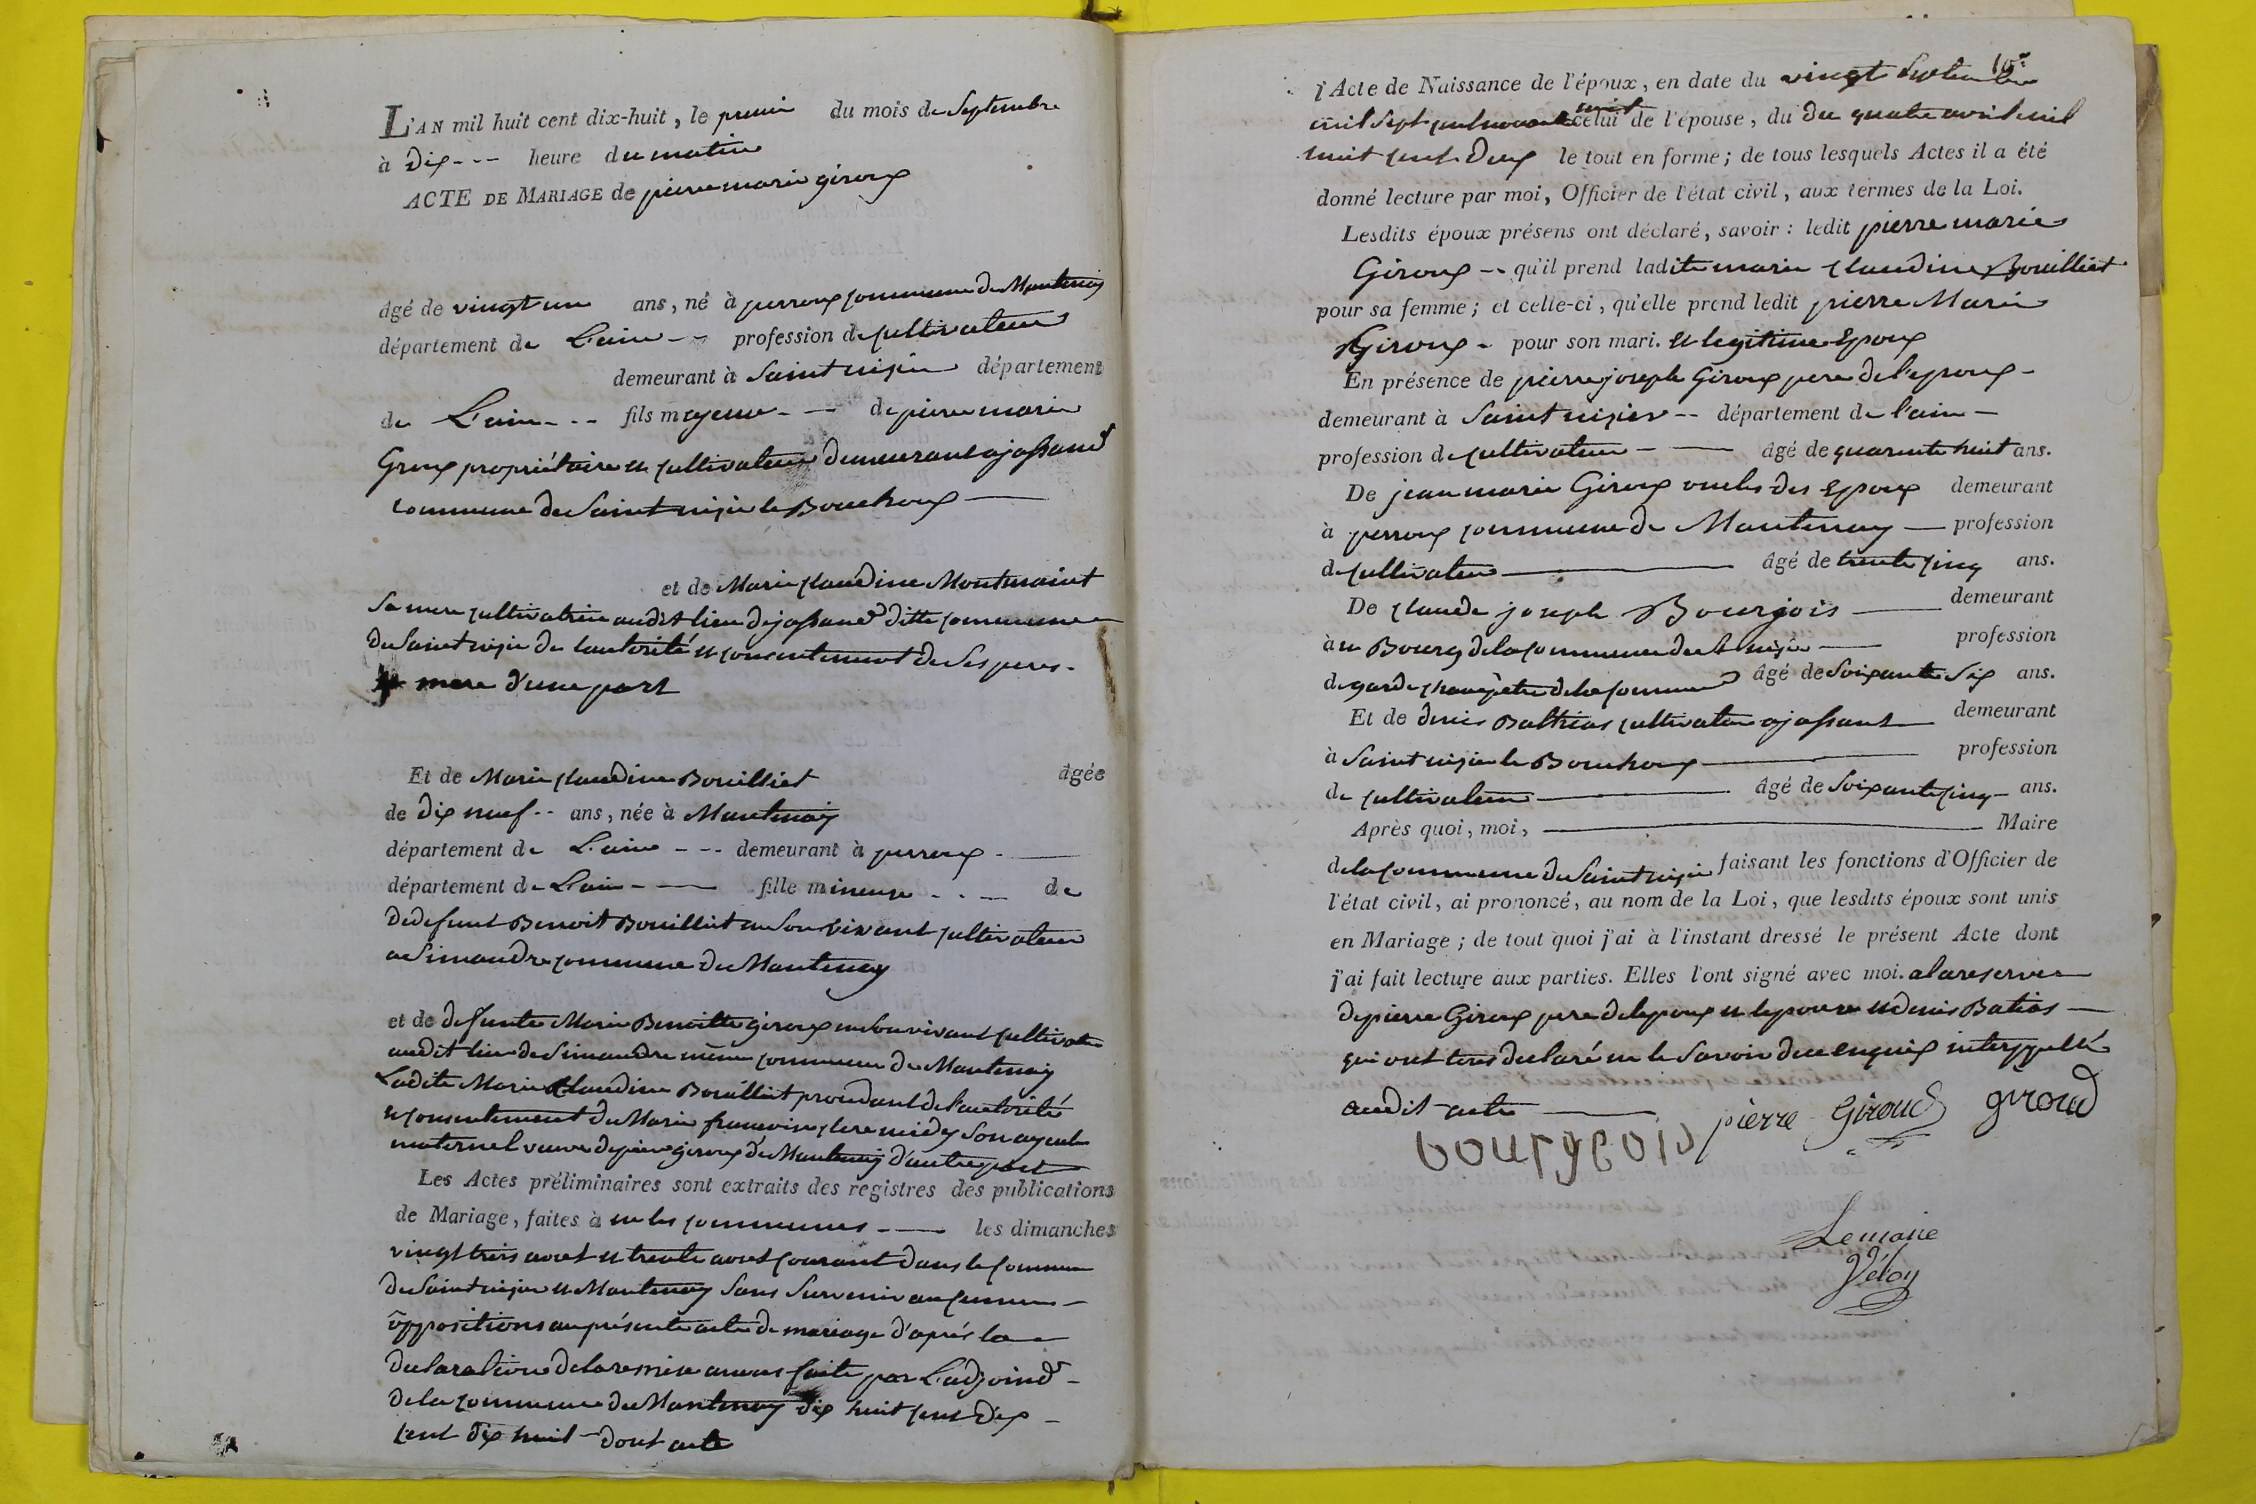 L'AN mil huit cent dix-huit, le premier du mois de Septembre
à dix --- heure du matin
ACTE DE MARIAGE de pierre marie giroux
âgé de vingt un ans, né à perroux commune de Mantenay
département de L'ain -- profession de cultivateur
demeurant à Saint nizier département
de L'ain -- fils mageur -- de pierre marie
Giroux propriétaire et cultivateur demeurant a jassand
commune de Saint nizier le Bouchoux
et de Marie claudine Montmaint
Sa mere cultivatrice audit lieu de jassand ditte commune
de Saint nizier de lautorité et consentement de Ses peres
mere d'une part
Et de Marie claudine Bouilliet âgée
de dix neuf -- ans, née à Mantenay
département de L'ain --- demeurant à perroux
département de L'ain -- fille mineure --- de
de defunt Benoit Bouilliet en Son vivant cultivateur
a Simandre commune de Mantenay
et de defunte Marie Benoitte giroux en Son vivant cultivat
audit lieu de Simandre même commune de Mantenay
Ladite Marie Claudine Bouilliet procedant de l'autorité
et consentement de Marie francoise Son ayeule
maternel veuve de pierre giroux de Mantenay d'autre part
Les Actes préliminaires sont extraits des registres des publications
de Mariage, faites à en les communes -- les dimanches
vingt trois aout et trente aout courant dans la commune
de Saint nizier et Mantenay Sans Survenir aucunne
oppositions au présente acte de mariage d'aprés la
declaration de la remise a nous faite par L'adjoind
de la commune de Mantenay dix huit cent dix
cent dix huit dont acte
10e
l'Acte de Naissance de l'époux, en date du vingt Septembre
mil Sept cent celui de l'épouse, du du quatre avril mil
huit cent deux le tout en forme; de tous lesquels Actes il a été
donné lecture par moi, Officier de l'état civil, aux termes de la Loi.
Lesdits époux présens ont déclaré, savoir : ledit pierre marie
Giroux -- qu'il prend ladite marie claudine Bouilliet
pour sa femme; et celle-ci, qu'elle prend ledit pierre Marie
Giroux - pour son mari. et legitime Epoux
En présence de pierre joseph Giroux pere de l'epoux -
demeurant à Saint nizier -- département de l'ain -
profession de cultivateur -- âgé de quarente huit ans.
De jean marie Giroux oncles des Epoux demeurant
à perroux commune de Mantenay -- profession
de cultivateur -- âgé de trente cinq ans.
De claude joseph Bourjois -- demeurant
à u Bourg de la commune de St nizier -- profession
de garde champêtre de la commune âgé de Soixante Six ans.
Et de denis Bathias cultivateur a jassant demeurant
à Saint nizier le Bouchoux -- profession
de cultivateur -- âgé de Soixante cinq - ans.
Après quoi, moi, -- Maire
de la commune de Saint nizier faisant les fonctions d'Officier de
l'état civil, ai prononcé, au nom de la Loi, que lesdits époux sont unis
en Mariage; de tout quoi j'ai à l'instant dressé le présent Acte dont
j'ai fait lecture aux parties. Elles l'ont signé avec moi. a la reserve
de pierre Giroux pere de lepoux et lepouse et denis Batias
qui ont tous declaré ne le Savoir de ce enquis interppellé
audit acte
pierre Giroud giroud
bourgeois
Le maire
Véloy